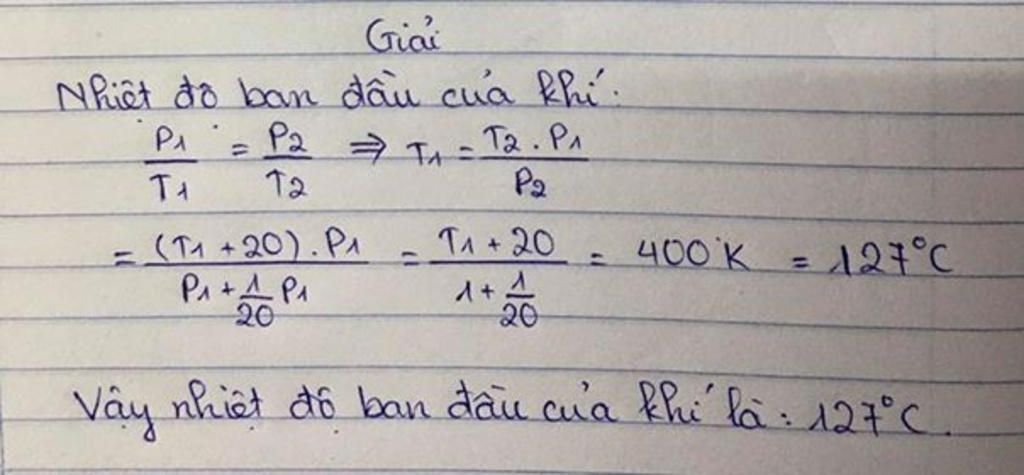 Giải
Nhiệt độ ban đầu của khí:
P1/T1 = P2/T2 ⇒ T1 = T2 . P1/P2
= (T1 + 20) . P1/(P1 + 1/20 P1) = (T1 + 20)/(1 + 1/20) = 400°K = 127°C
Vậy nhiệt độ ban đầu của khí là: 127°C.